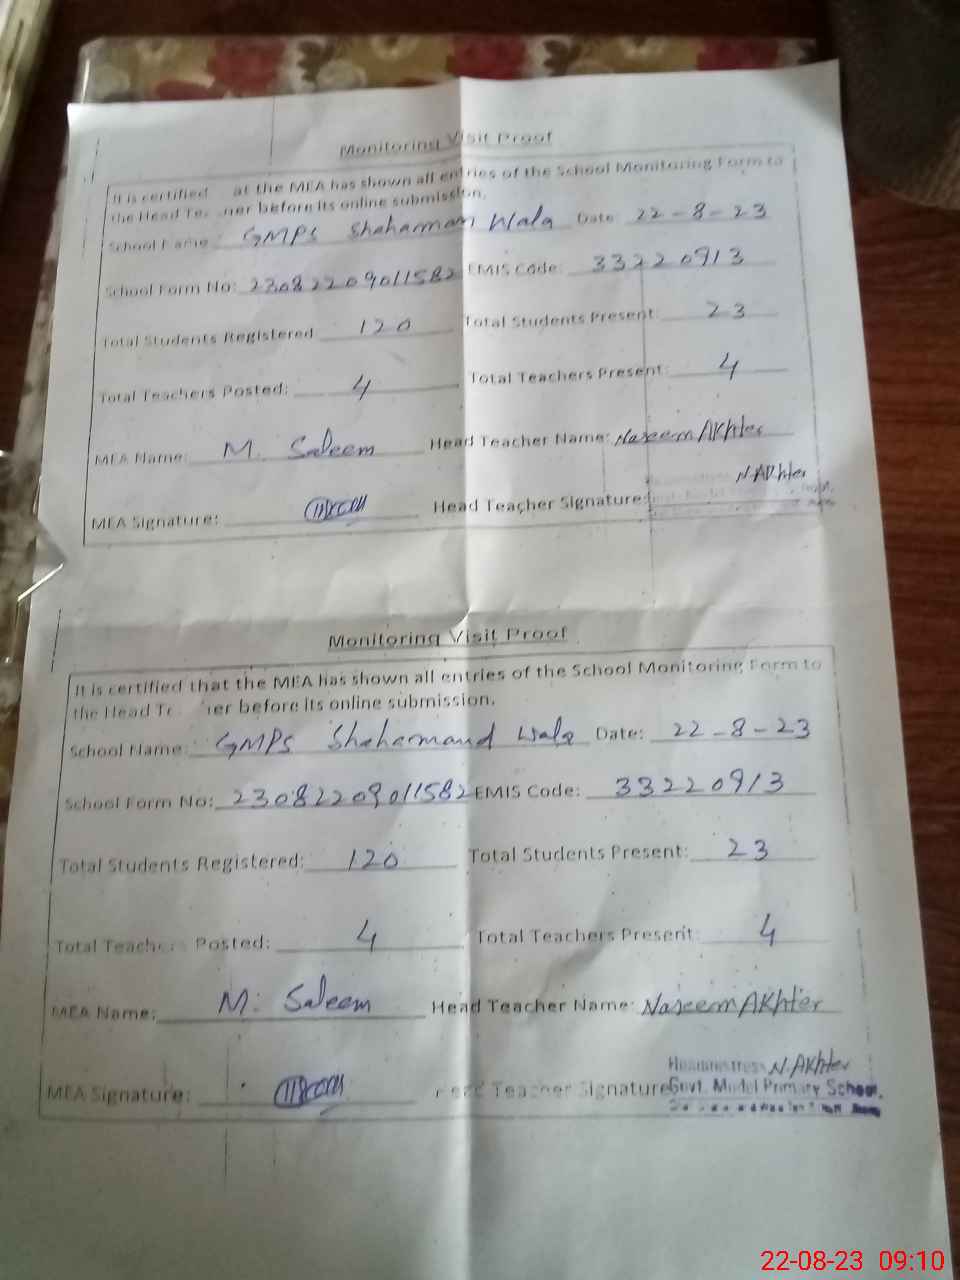 Monitoring Visit Proof
It is certified at the MEA has shown all entries of the School Monitoring Form to
the Head before its online submission.
School Name: GMPS Shaharman Wala Date: 22-8-23
School Form No: 23082209011582 EMIS Code: 33220913
Total Students Registered 120 Total Students Present: 23
Total Teachers Posted: 4 Total Teachers Present: 4
MEA Name: M. Saleem Head Teacher Name: Naseem AKhter
N.AKhter
MEA Signature: Head Teacher Signature:
Monitoring Visit Proof
It is certified that the MEA has shown all entries of the School Monitoring Form to
the Head before its online submission.
School Name: GMPS Shahamand Wala Date: 22-8-23
School Form No: 23082209011582 EMIS Code: 33220913
Total Students Registered: 120 Total Students Present: 23
Total Teachers Posted: 4 Total Teachers Present: 4
MEA Name: M. Saleem Head Teacher Name: Naseem AKhter
Headmistress N.AKhter
MEA Signature: Head Teacher Signature Govt. Model Primary School
22-08-23 09:10